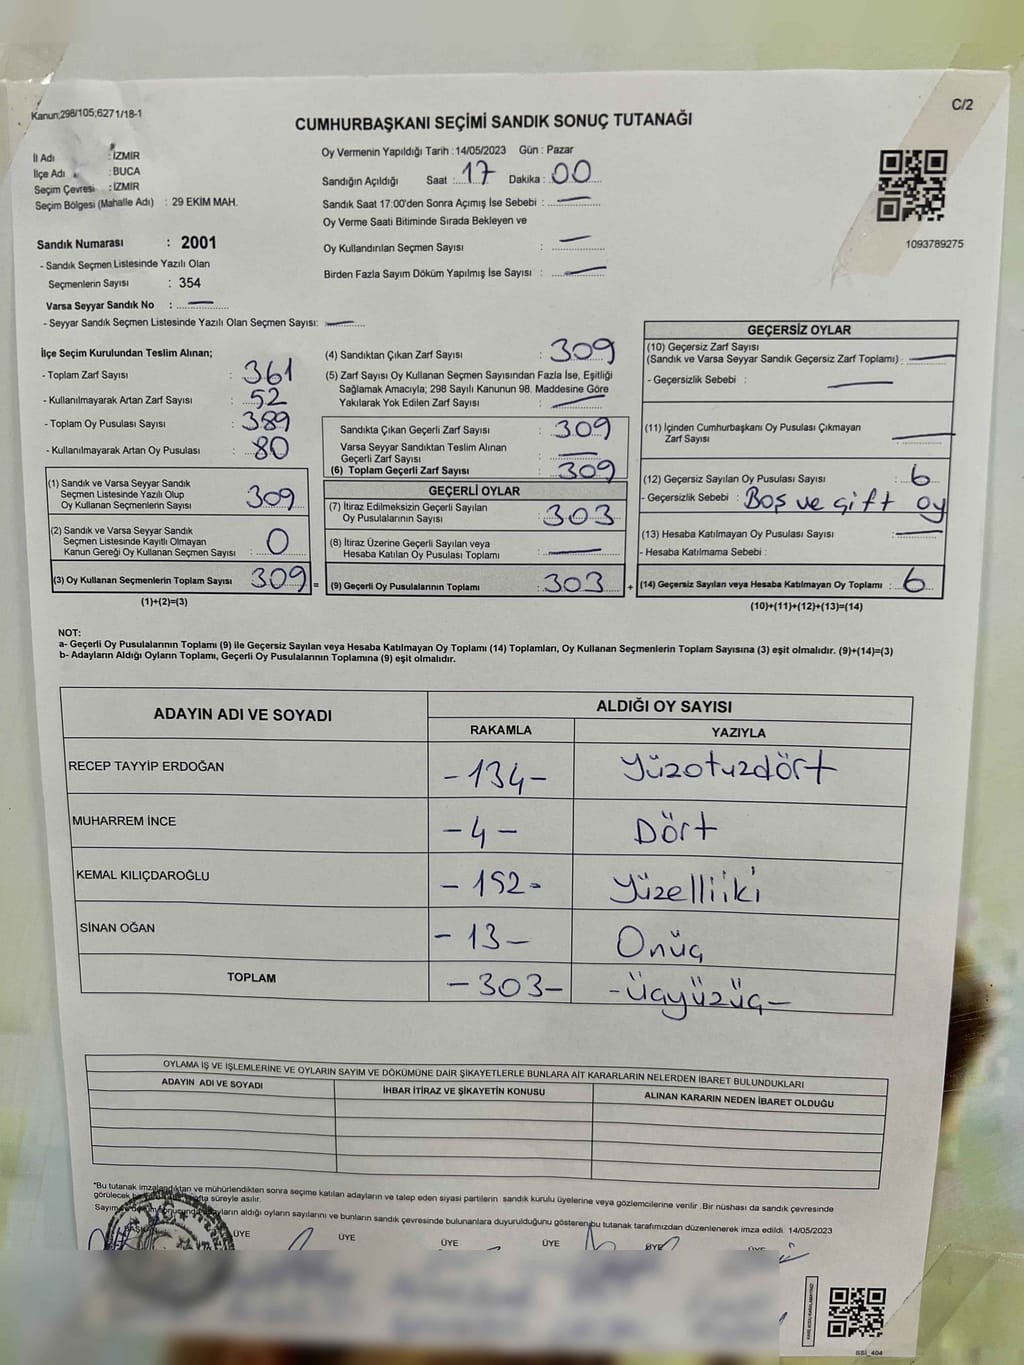 Kanun;298/105;6271/18-1
C/2
CUMHURBAŞKANI SEÇİMİ SANDIK SONUÇ TUTANAĞI
İl Adı : İZMİR
İlçe Adı : BUCA
Seçim Çevresi : İZMİR
Seçim Bölgesi (Mahalle Adı) : 29 EKİM MAH.
Sandık Numarası : 2001
- Sandık Seçmen Listesinde Yazılı Olan
Seçmenlerin Sayısı : 354
Varsa Seyyar Sandık No :
- Seyyar Sandık Seçmen Listesinde Yazılı Olan Seçmen Sayısı:
Oy Vermenin Yapıldığı Tarih : 14/05/2023 Gün : Pazar
Sandığın Açıldığı Saat : 17 Dakika : 00
Sandık Saat 17:00'den Sonra Açımış İse Sebebi :
Oy Verme Saati Bitiminde Sırada Bekleyen ve
Oy Kullandırılan Seçmen Sayısı :
Birden Fazla Sayım Döküm Yapılmış İse Sayısı :
1093789275
İlçe Seçim Kurulundan Teslim Alınan;
- Toplam Zarf Sayısı : 361
- Kullanılmayarak Artan Zarf Sayısı : 52
- Toplam Oy Pusulası Sayısı : 389
- Kullanılmayarak Artan Oy Pusulası : 80
(1) Sandık ve Varsa Seyyar Sandık
Seçmen Listesinde Yazılı Olup
Oy Kullanan Seçmenlerin Sayısı : 309
(2) Sandık ve Varsa Seyyar Sandık
Seçmen Listesinde Kayıtlı Olmayan
Kanun Gereği Oy Kullanan Seçmen Sayısı : 0
(3) Oy Kullanan Seçmenlerin Toplam Sayısı : 309 =
(1)+(2)=(3)
(4) Sandıktan Çıkan Zarf Sayısı : 309
(5) Zarf Sayısı Oy Kullanan Seçmen Sayısından Fazla İse, Eşitliği
Sağlamak Amacıyla; 298 Sayılı Kanunun 98. Maddesine Göre
Yakılarak Yok Edilen Zarf Sayısı :
Sandıkta Çıkan Geçerli Zarf Sayısı : 309
Varsa Seyyar Sandıktan Teslim Alınan
Geçerli Zarf Sayısı :
(6) Toplam Geçerli Zarf Sayısı : 309
GEÇERLİ OYLAR
(7) İtiraz Edilmeksizin Geçerli Sayılan
Oy Pusulalarının Sayısı : 303
(8) İtiraz Üzerine Geçerli Sayılan veya
Hesaba Katılan Oy Pusulası Toplamı :
(9) Geçerli Oy Pusulalarının Toplamı : 303 +
GEÇERSİZ OYLAR
(10) Geçersiz Zarf Sayısı
(Sandık ve Varsa Seyyar Sandık Geçersiz Zarf Toplamı) :
- Geçersizlik Sebebi :
(11) İçinden Cumhurbaşkanı Oy Pusulası Çıkmayan
Zarf Sayısı
(12) Geçersiz Sayılan Oy Pusulası Sayısı : 6
- Geçersizlik Sebebi : Boş ve çift oy
(13) Hesaba Katılmayan Oy Pusulası Sayısı :
- Hesaba Katılmama Sebebi :
(14) Geçersiz Sayılan veya Hesaba Katılmayan Oy Toplamı : 6
(10)+(11)+(12)+(13)=(14)
NOT:
a- Geçerli Oy Pusulalarının Toplamı (9) ile Geçersiz Sayılan veya Hesaba Katılmayan Oy Toplamı (14) Toplamları, Oy Kullanan Seçmenlerin Toplam Sayısına (3) eşit olmalıdır. (9)+(14)=(3)
b- Adayların Aldığı Oyların Toplamı, Geçerli Oy Pusulalarının Toplamına (9) eşit olmalıdır.
ADAYIN ADI VE SOYADI
ALDIĞI OY SAYISI
RAKAMLA YAZIYLA
RECEP TAYYİP ERDOĞAN -134- Yüzotuzdört
MUHARREM İNCE -4- Dört
KEMAL KILIÇDAROĞLU -152- Yüzelliiki
SİNAN OĞAN -13- Onüç
TOPLAM -303- -Üçyüzüç-
OYLAMA İŞ VE İŞLEMLERİNE VE OYLARIN SAYIM VE DÖKÜMÜNE DAİR ŞİKAYETLERLE BUNLARA AİT KARARLARIN NELERDEN İBARET BULUNDUKLARI
ADAYIN ADI VE SOYADI İHBAR İTİRAZ VE ŞİKAYETİN KONUSU ALINAN KARARIN NEDEN İBARET OLDUĞU
"Bu tutanak imzalandıktan ve mühürlendikten sonra seçime katılan adayların ve talep eden siyasi partilerin sandık kurulu üyelerine veya gözlemcilerine verilir .Bir nüshası da sandık çevresinde
görülecek süreyle asılır.
Sayım aldığı oyların sayılarını ve bunların sandık çevresinde bulunanlara duyurulduğunu gösteren bu tutanak tarafımızdan düzenlenerek imza edildi. 14/05/2023
ÜYE ÜYE ÜYE ÜYE ÜYE ÜYE